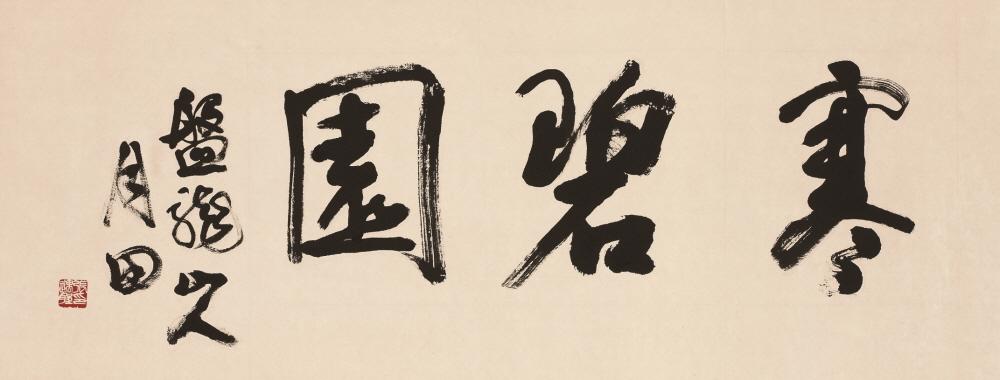 寒碧園
盤龍山人
月田